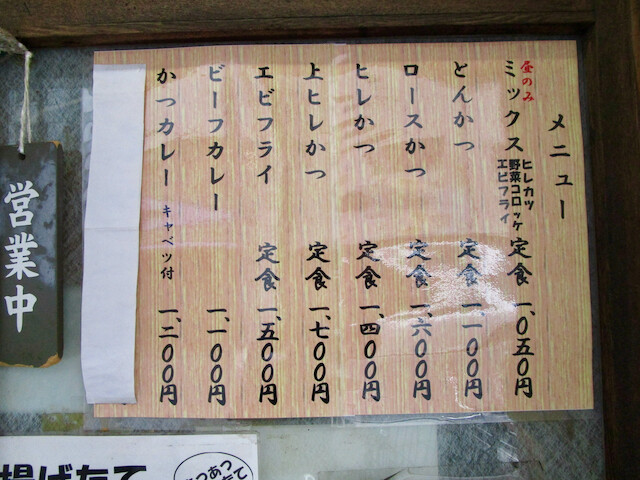 メニュー
昼のみ
ミックス ヒレカツ 野菜コロッケ エビフライ 定食 一、〇五〇円
とんかつ 定食 一、一〇〇円
ロースかつ 定食 一、六〇〇円
ヒレかつ 定食 一、四〇〇円
上ヒレかつ 定食 一、七〇〇円
エビフライ 定食 一、五〇〇円
ビーフカレー 一、一〇〇円
かつカレー キャベツ付 一、二〇〇円
営業中
揚げたて